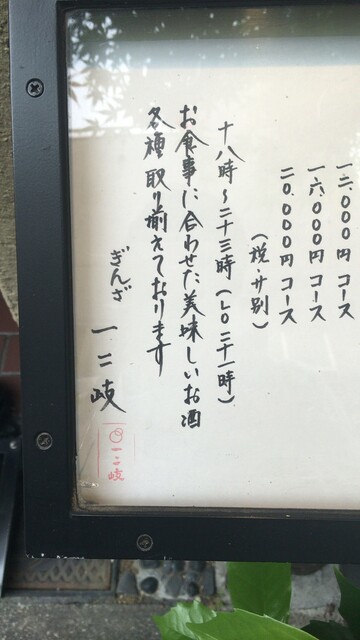 一二.〇〇〇円コース
一六.〇〇〇円コース
二〇.〇〇〇円コース
（税・サ別）
十八時〜二十三時（LO二十一時）
お食事に合わせた美味しいお酒
各種取り揃えております
ぎんざ
一二岐
一二岐